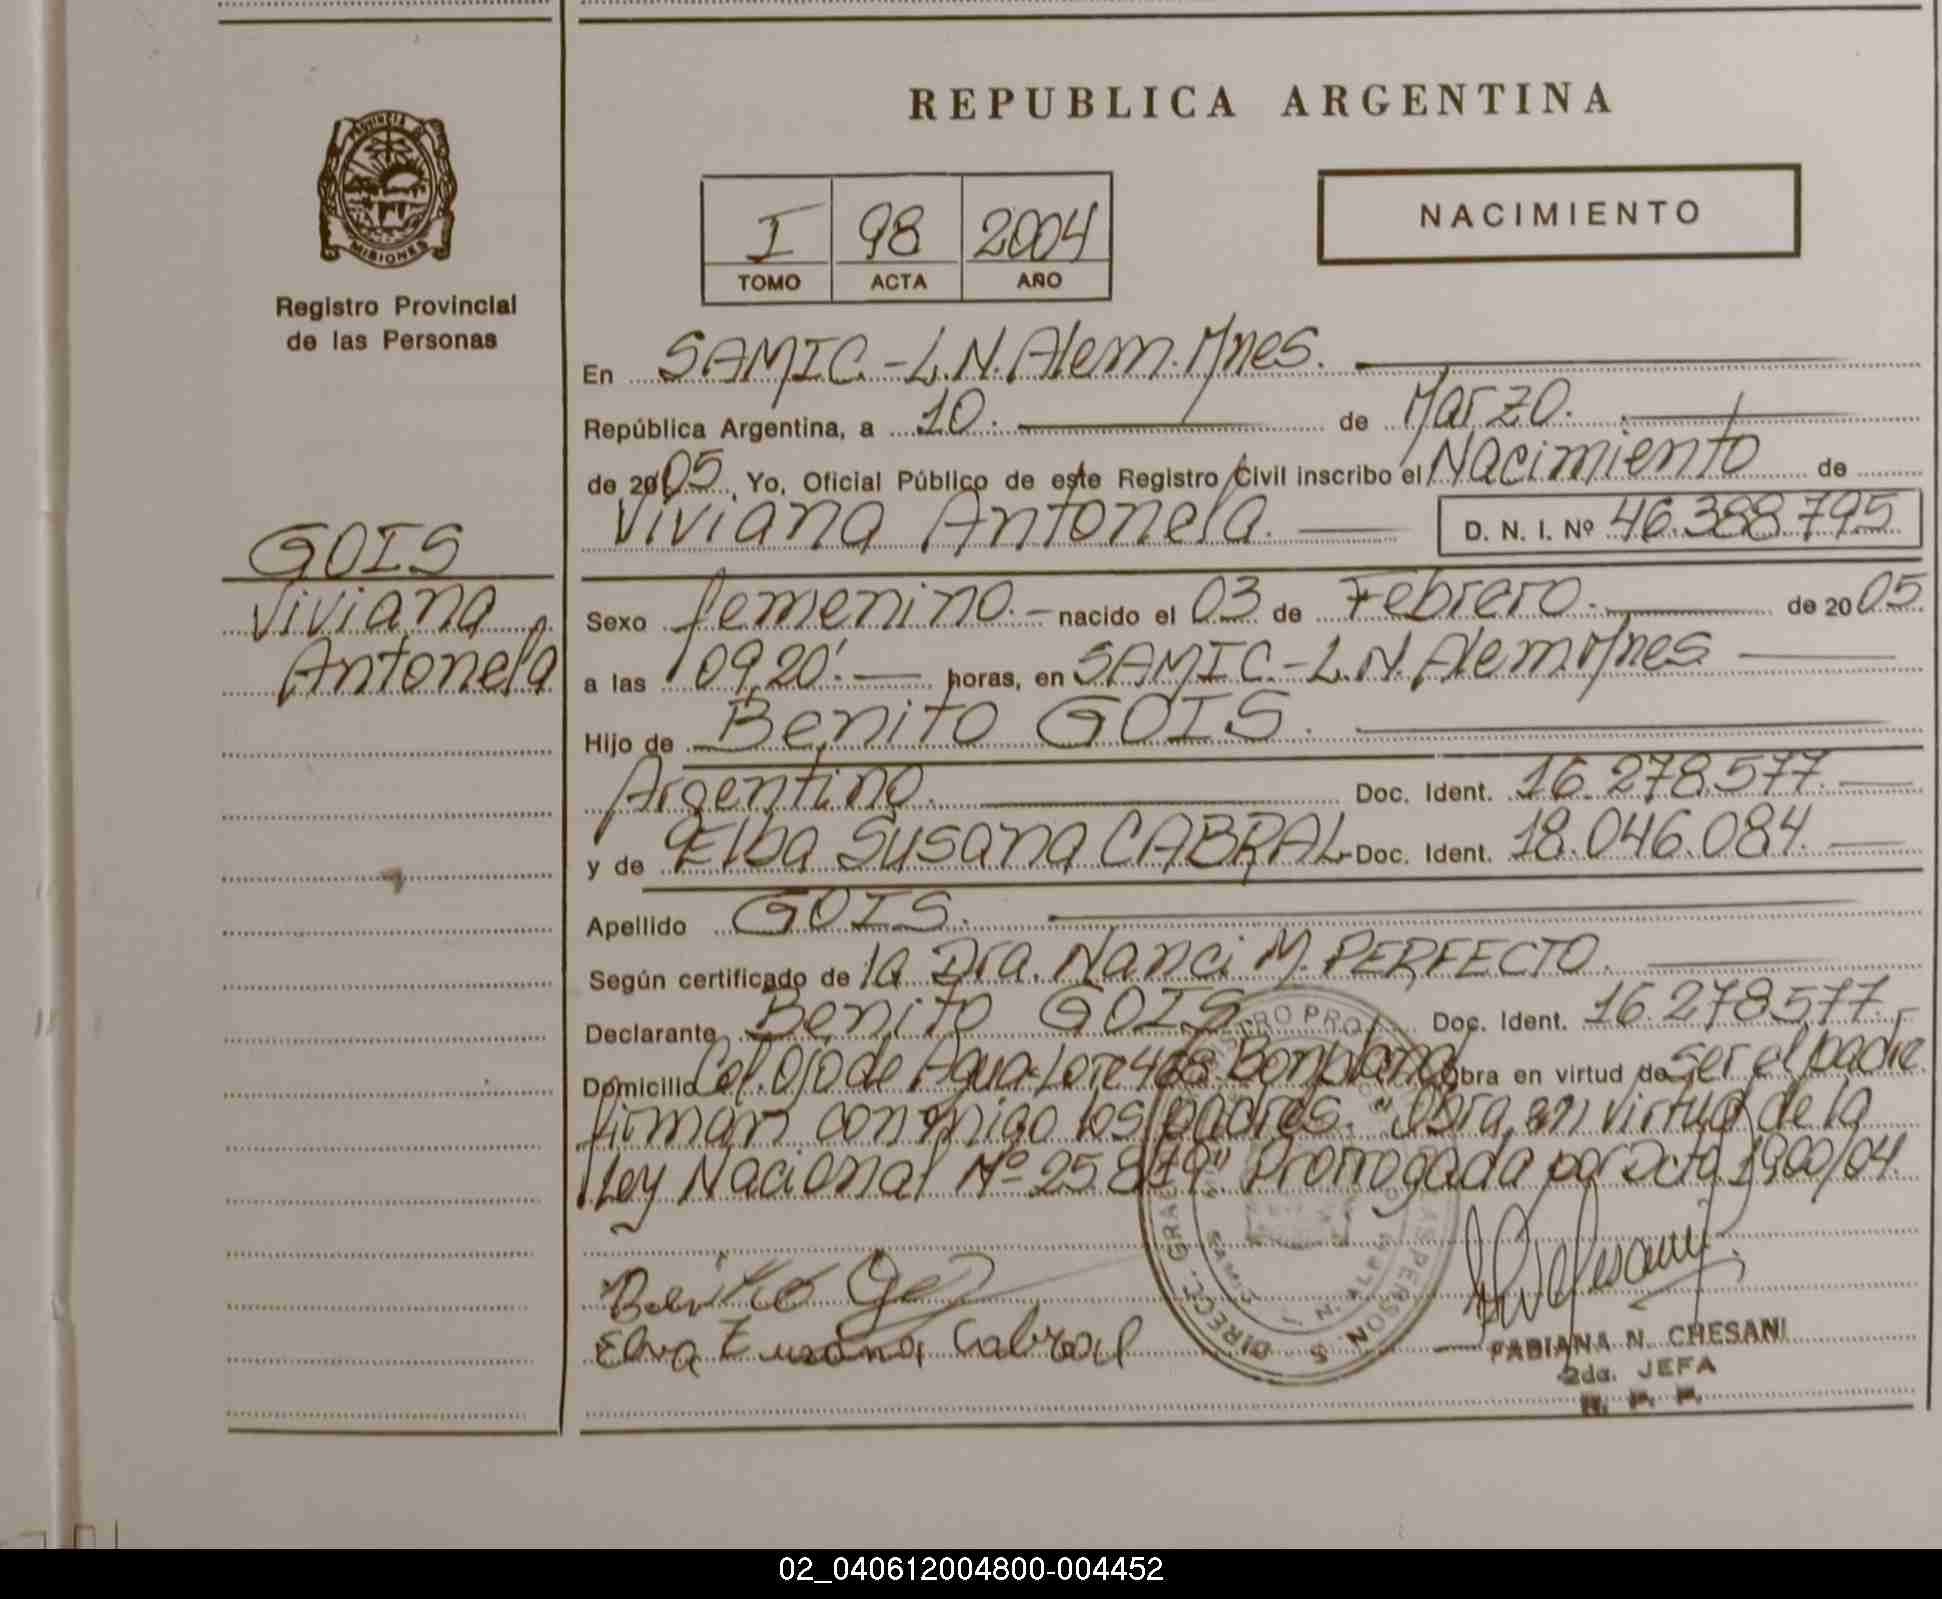 REPUBLICA ARGENTINA
PROVINCIA DE
MISIONES
Registro Provincial
de las Personas
I 98 2004
TOMO ACTA AÑO
NACIMIENTO
En SAMIC.-L.N.Alem.Mnes.
República Argentina, a 10. de Marzo.
de 2005, Yo, Oficial Público de este Registro Civil inscribo el Nacimiento de
Viviana Antonela. D. N. I. Nº 46.388.795
GOIS
Viviana
Antonela
Sexo femenino.- nacido el 03 de Febrero. de 2005
a las 09,20'. horas, en SAMIC.-L.N.Alem.Mnes
Hijo de Benito GOIS.
Argentino. Doc. Ident. 16.278.577.
y de Elba Susana CABRAL Doc. Ident. 18.046.084.
Apellido GOIS.
Según certificado de la Dra. Nanci M. PERFECTO.
Declarante Benito GOIS Doc. Ident. 16.278.577.
Domicilio Col.Ojo de Agua-Lote 468 Bonpland Obra en virtud de ser el padre
firman conmigo los padres. "Obra en virtud de la
Ley Nacional Nº 25.819" Prorrogada por Dcto 1900/04.
Benito
Elva Zusana Cabral
FABIANA N. CHESANI
2da. JEFA
R. P. P.
02_040612004800-004452